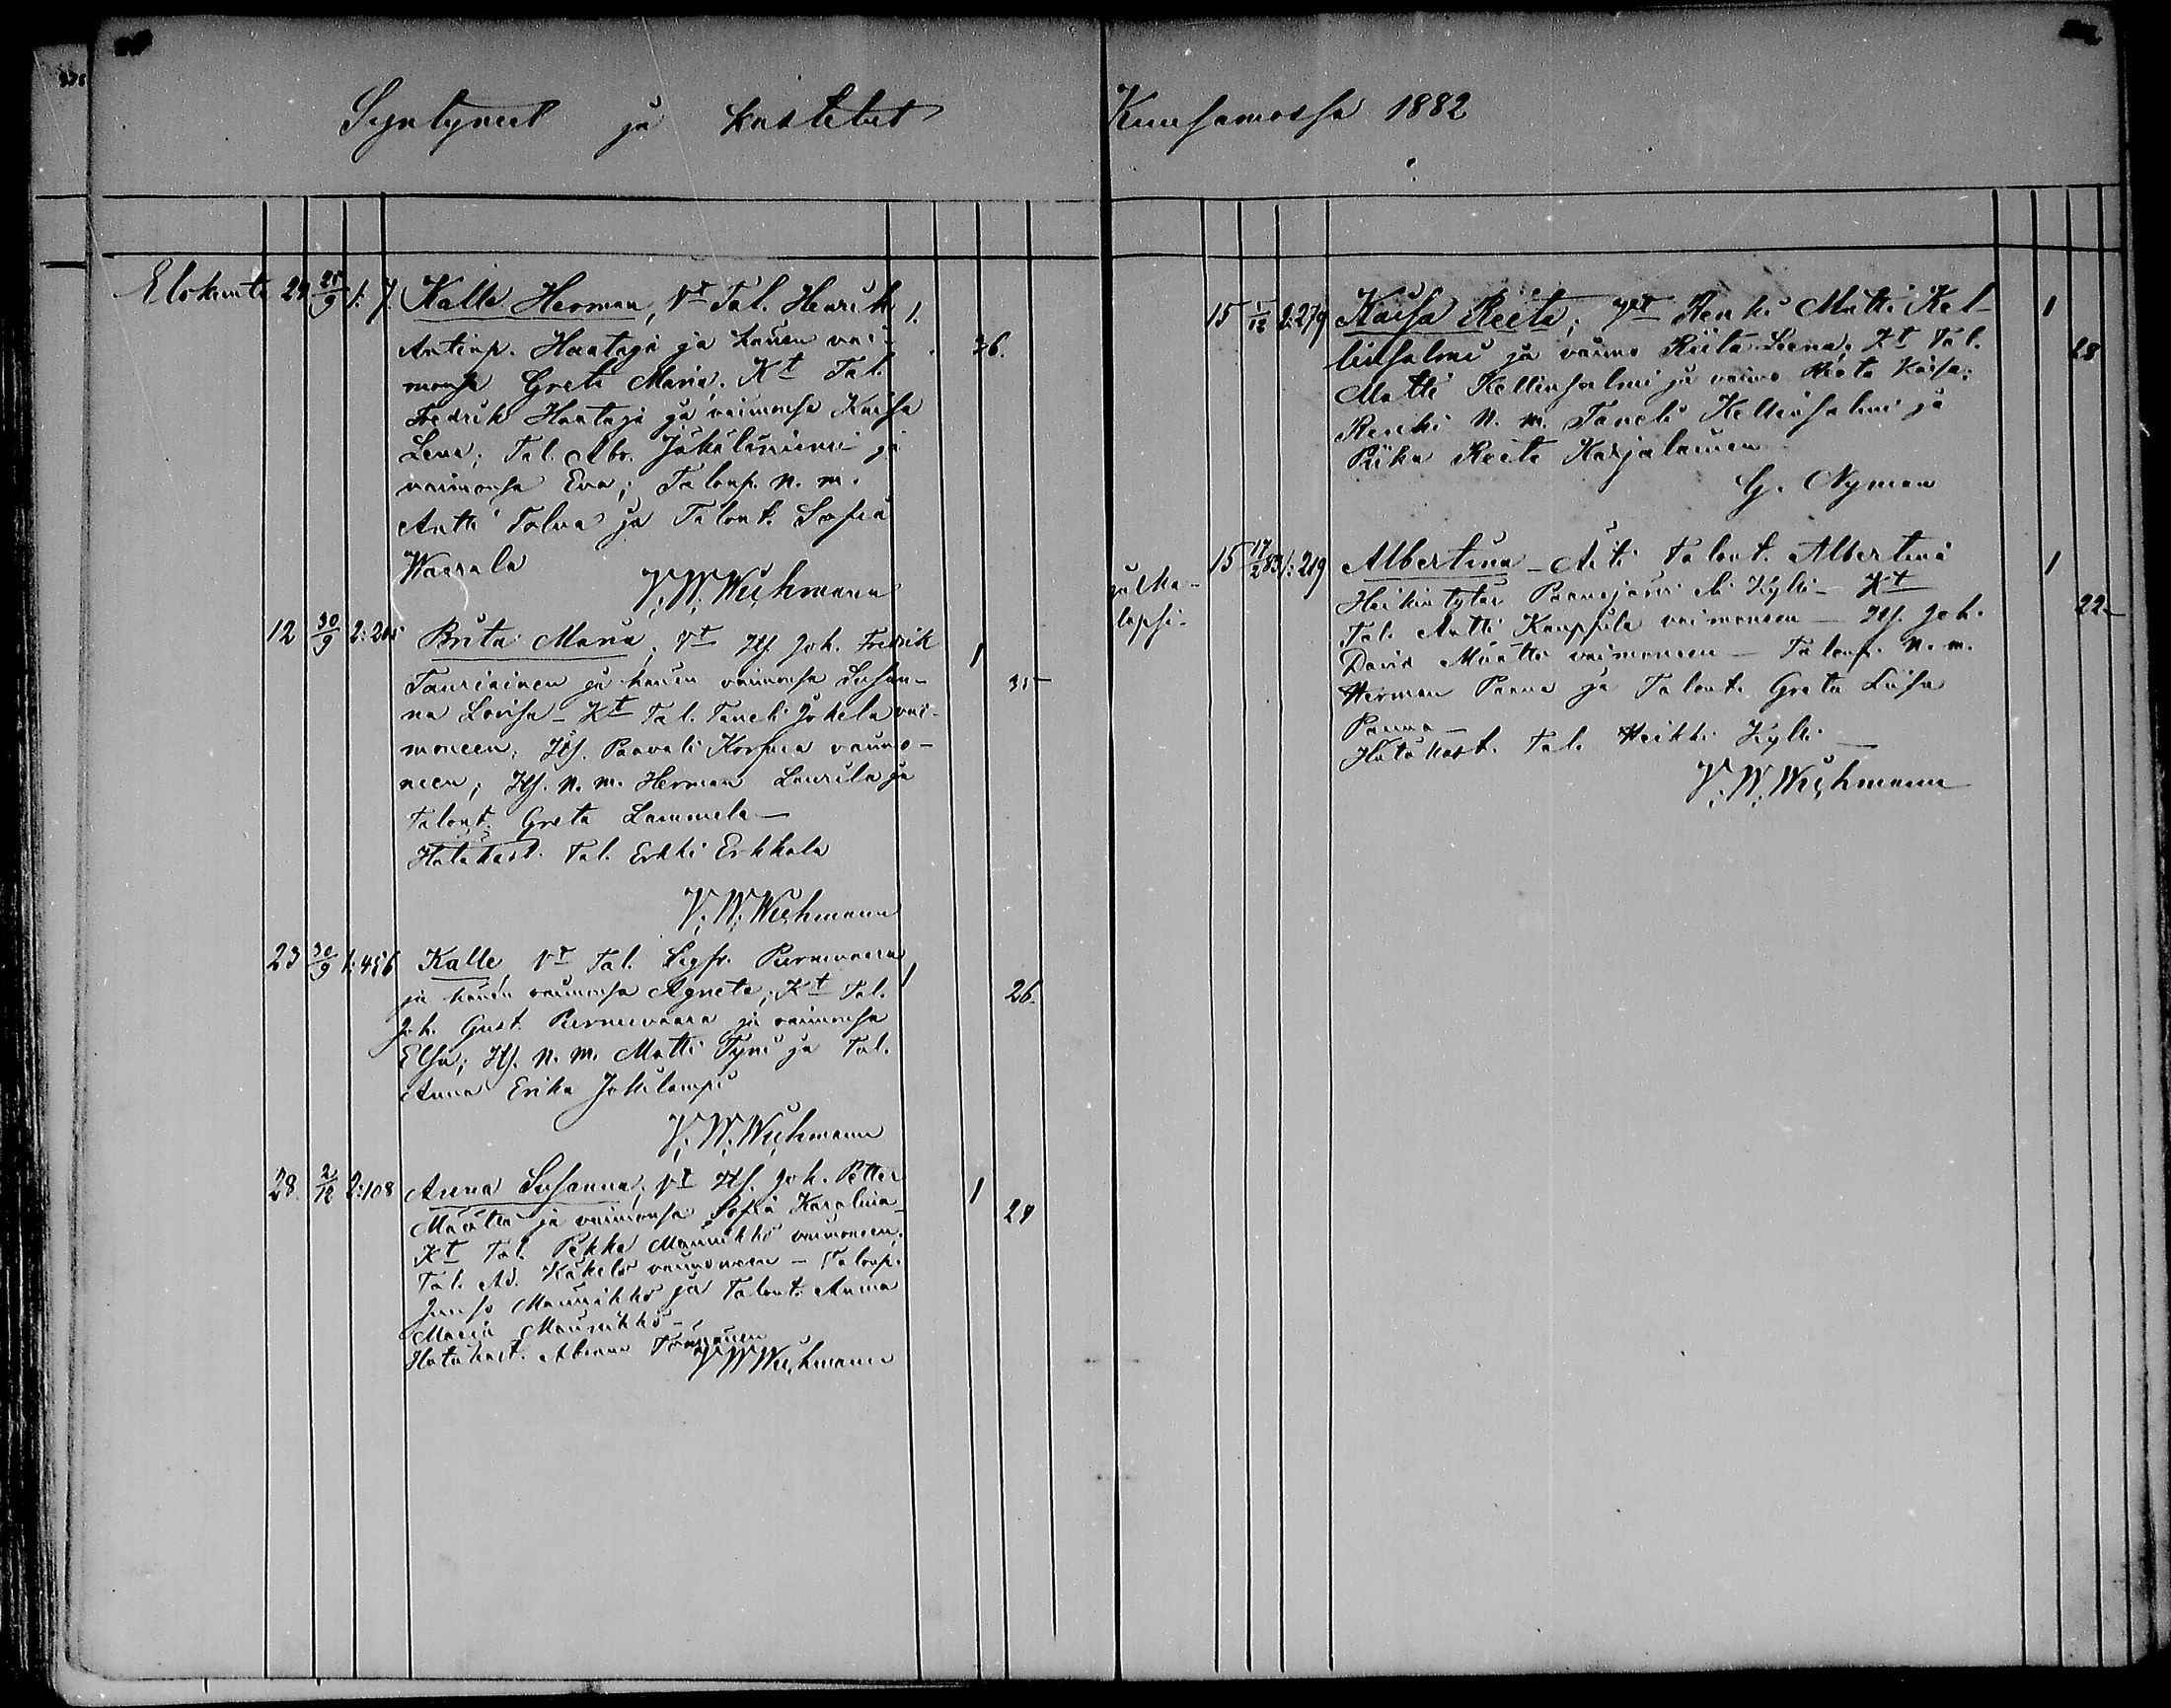 Syntyneet ja kastetut Kuusamossa 1882
Elokuuta 24 25/9 1: 7. Kalle Herman, Vt Tal. Henrik 1.
Antinp. Haataja ja hänen vai- 36.
monsa Greta Maria. Kt Tal.
Fredrik Haataja ja vaimonsa Kaisa
Lena; Tal. Abr. Jäkäläniemi ja
vaimonsa Eva; Talonp. n. m.
Antti Tolva ja Talont. Sofia
Waarala
V. W. Wichmann
12 30/9 2: Brita Maria, Vt Itf. Joh. Fredrik 1
Tauriainen ja hänen vaimonsa Susan- 35
na Lovisa - Kt Tal. Taneli Jokela vai-
moneen; Itf. Paavali Korpua vaimo-
neen; Itf. n. m. Herman Laurila ja
Talont. Greta Lammela -
Hätäkast. Tal. Erkki Erkkola
V. W. Wichmann
23 30/9 1:456 Kalle Vt Tal. Sigfr. Pernuvaara 1
ja hänen vaimonsa Agneta; Kt Tal. 26.
Joh. Gust. Pernuvaara ja vaimonsa
Elsa; Itf. n. m. Matti Tyni ja Tal.
Anna Erika Jokilampi
V. W. Wichmann
28. 2/12 2:108 Anna Susanna, Vt Itf. Joh. Petter 1
Määttä ja vaimonsa Sofia Karolina - 29
Kt Tal. Pekka Maunikko vaimoneen,
Tal. Ad. Käkelä vaimoneen - Talonp.
Juuso Maunikko ja Talont. Anna
Maria Maunikko -
Hätäkast. Abram
V W Wichmann
15 1/12 2:279 Kaisa Reeta, Vt Renki Matti Kal- 1
liosalmi ja vaimo Riita Leena; Kt Tal. 28
Matti Kalliosalmi ja vaimo Reeta Kaisa;
Renki n. m. Taneli Kalliosalmi ja
Piika Reeta Karjalainen
G. Nyman
15 17/2 83 1:219 Albertina - Äiti Talont. Albertina 1
julka-
lapsi - Heikintytär Paanajärvi Kylli - Kt 22
Tal. Antti Kauppila vaimoneen - Itf. Joh.
David Määttä vaimoneen - Talonp. n. m.
Herman Paana ja Talont. Greta Liisa
Paana -
Hätäkast. Tal. Heikki Kylli -
V. W. Wichmann